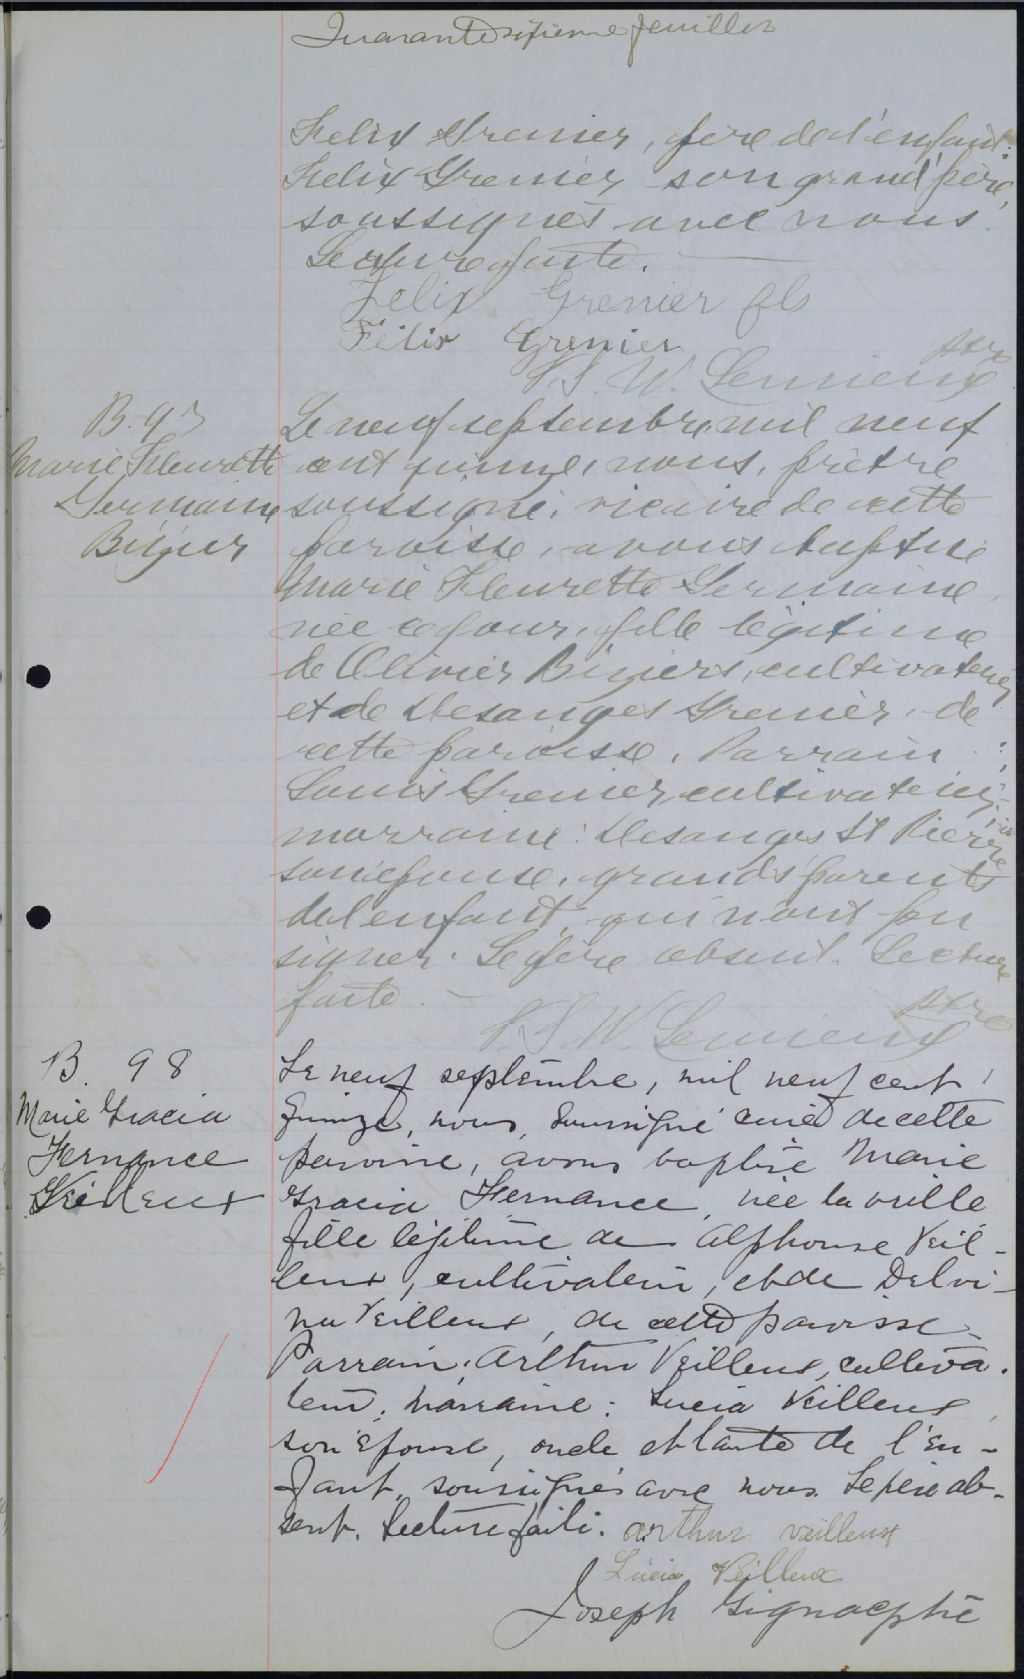 Quarante sixième feuillet
Felix Grenier, père de l'enfant
Felix Grenier son grand'père,
soussignés avec nous.
Lecture faite.
Felix Grenier fils
Félix Grenier
J. S. W. Lemieux ptre
B. 97
Marie Fleurette
Germaine
Bizier
Le neuf septembre, mil neuf
cent quinze, nous, prêtre
soussigné, vicaire de cette
paroisse, avons baptisé
Marie Fleurette Germaine,
née ce jour, fille légitime
de Olivier Biziers, cultivateur,
et de Desanges Grenier, de
cette paroisse. Parrain :
Louis Grenier, cultivateur,
marraine : Desanges St Pierre
son épouse, grands parents
de l'enfant, qui n'ont pu
signer. Le père absent. Lecture
faite.
J. S. W. Lemieux ptre
B. 98
Marie Gracia
Fernance
Veilleux
Le neuf septembre, mil neuf cent
quinze, nous, soussigné curé de cette
paroisse, avons baptisé Marie
Gracia Fernance, née la veille
fille légitime de Alphonse Veil-
leux, cultivateur, et de Delvi-
na Veilleux, de cette paroisse.
Parrain: Arthur Veilleux, cultiva-
teur, marraine: Lucia Veilleux,
son épouse, oncle et tante de l'en-
fant, soussignés avec nous. Le père ab-
sent. Lecture faite. arthur veilleux
Lucia Veilleux
Joseph Gignac ptre